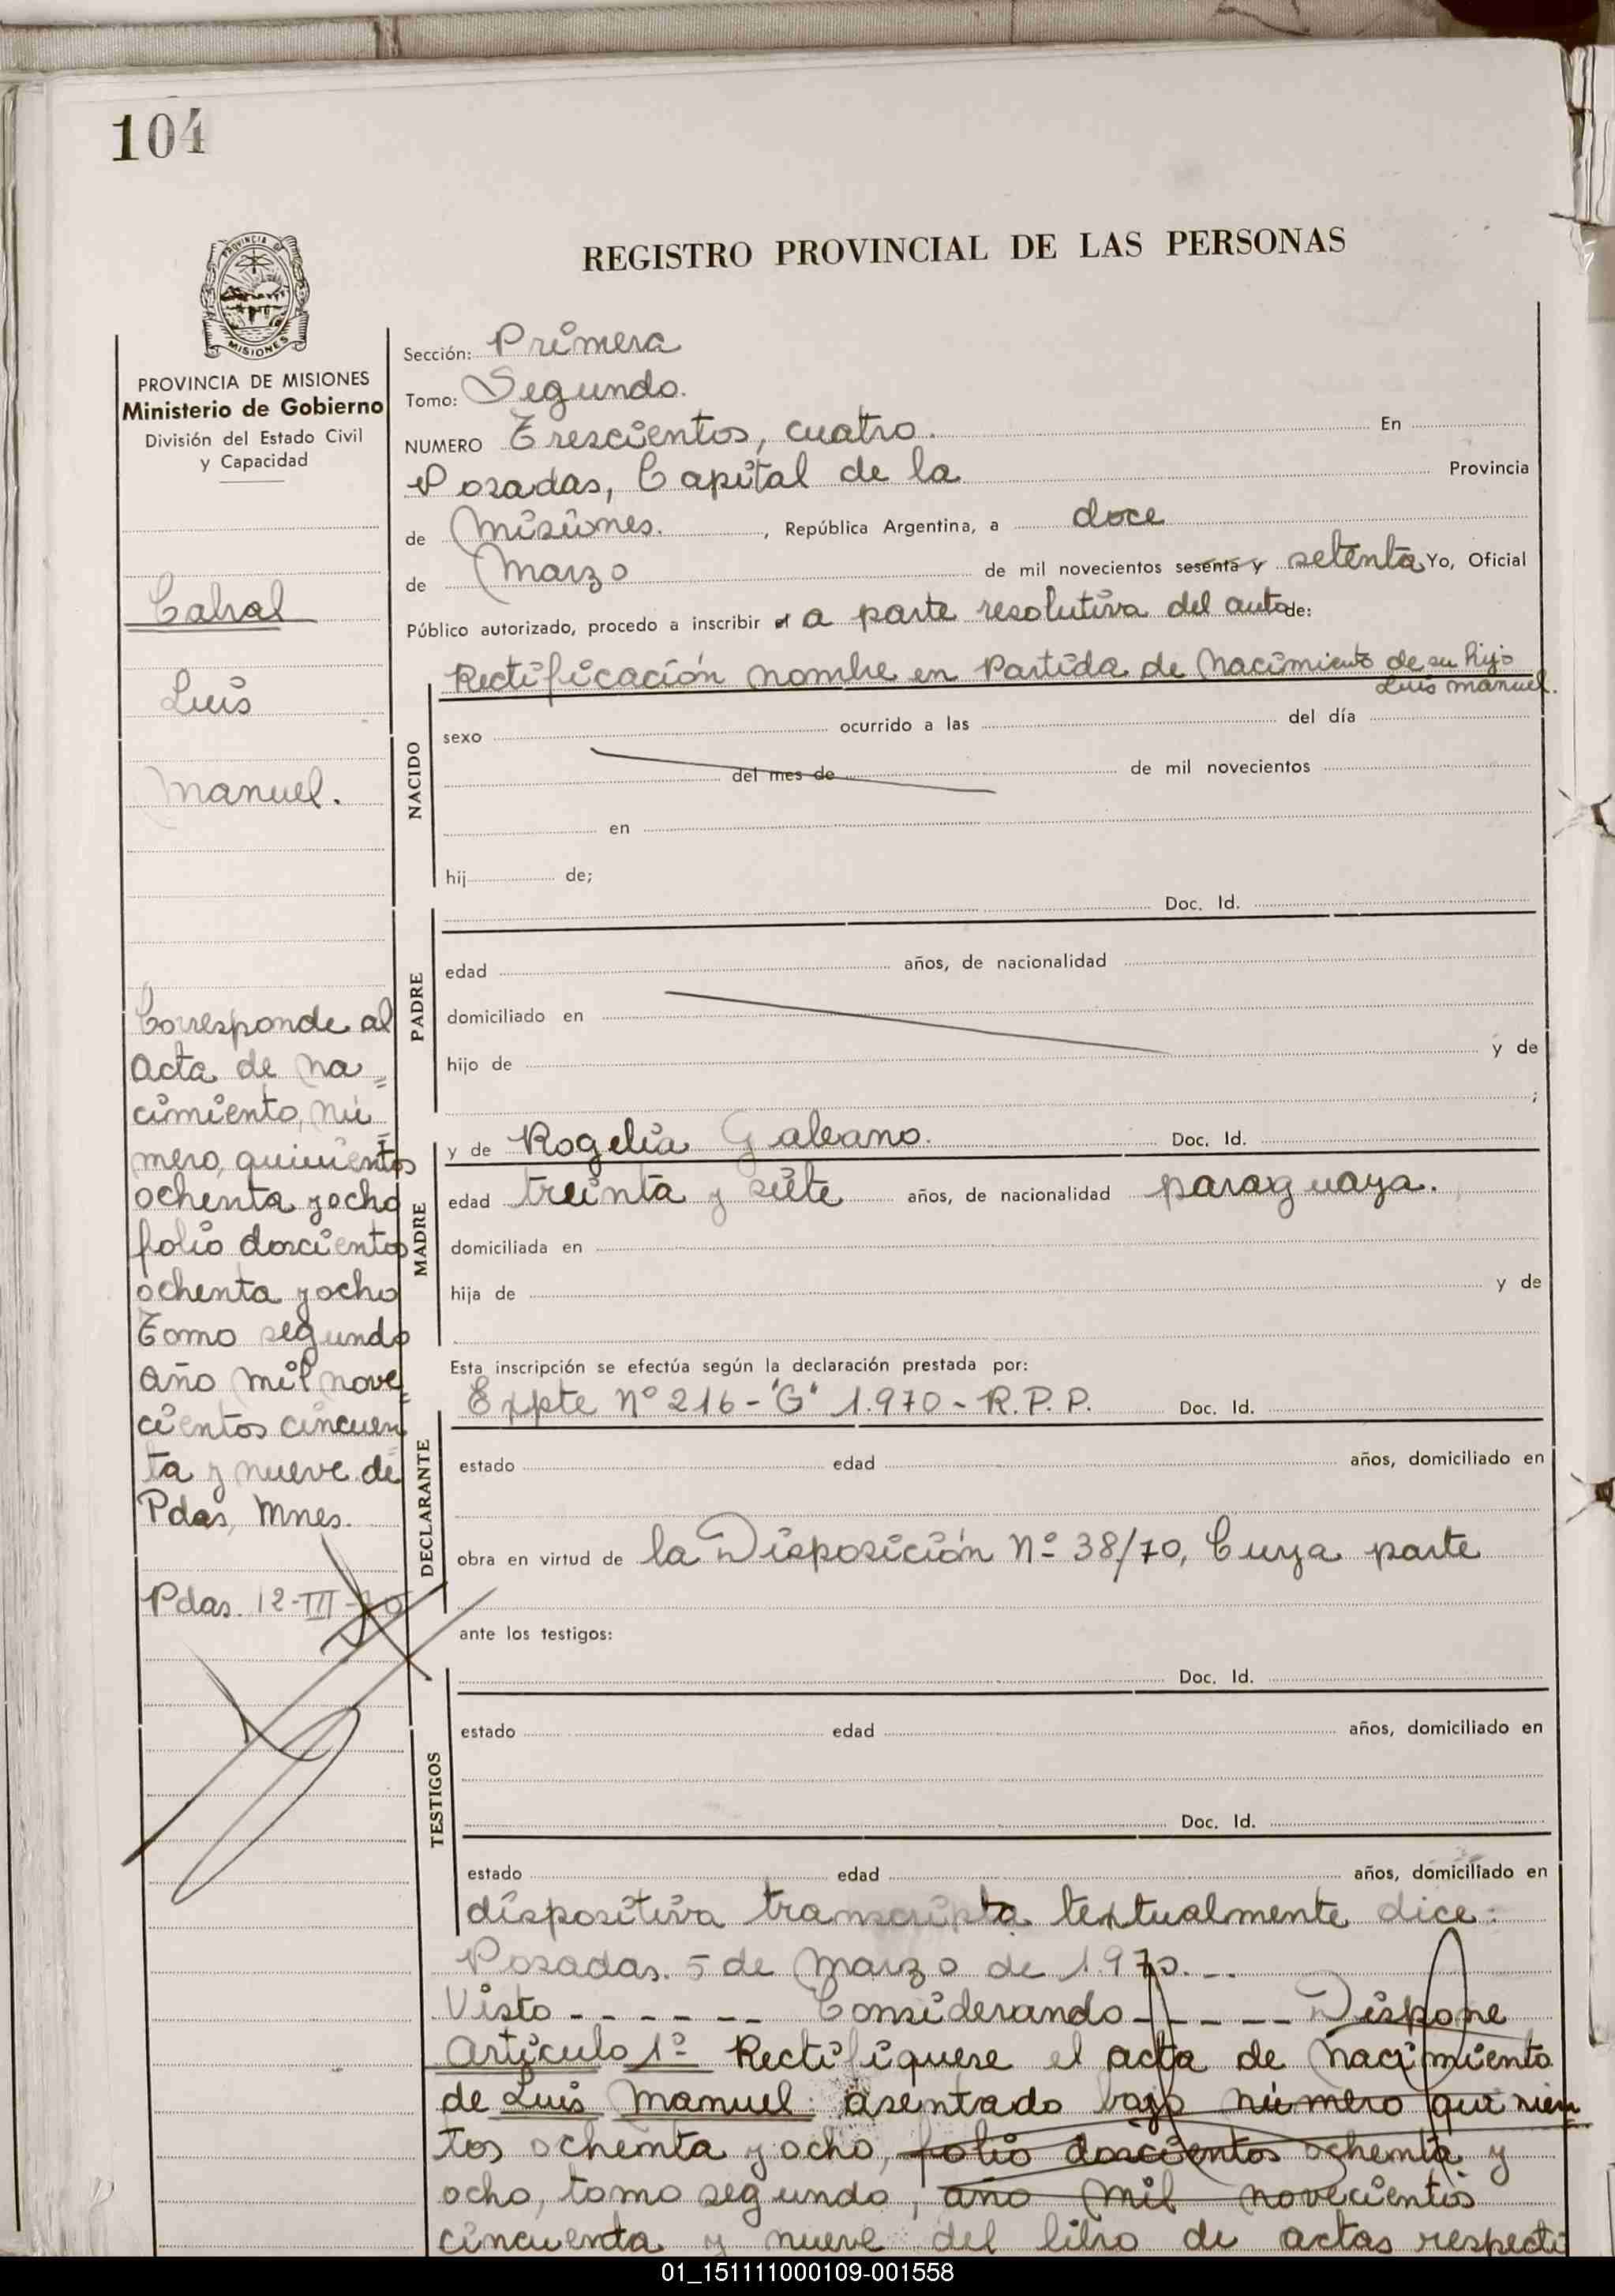 104
REGISTRO PROVINCIAL DE LAS PERSONAS
PROVINCIA DE MISIONES
PROVINCIA DE MISIONES
Ministerio de Gobierno
División del Estado Civil
y Capacidad
Cabral
Luis
Manuel.
Corresponde al
Acta de Na=
cimiento, nú=
mero, quinientos
ochenta y ocho
folio doscientos
ochenta y ocho
Tomo segundo
año mil nove=
cientos cincuen=
ta y nueve de
Pdas, Mnes.
Pdas. 12-III-70
Sección: Primera
Tomo: Segundo.
NUMERO Trescientos, cuatro. En
Posadas, Capital de la Provincia
de Misiones. , República Argentina, a doce
de Marzo de mil novecientos sesenta y setenta Yo, Oficial
Público autorizado, procedo a inscribir el a parte resolutiva del auto de:
Rectificación nombre en Partida de Nacimiento de su hijo
Luis Manuel.
NACIDO
sexo ocurrido a las del día
del mes de de mil novecientos
en
hij de;
Doc. Id.
PADRE
edad años, de nacionalidad
domiciliado en
hijo de y de
;
MADRE
y de Rogelia Galeano. Doc. Id.
edad treinta y siete años, de nacionalidad paraguaya.
domiciliada en
hija de y de
Esta inscripción se efectúa según la declaración prestada por:
Expte Nº 216-"G" 1.970- R.P.P. Doc. Id.
DECLARANTE
estado edad años, domiciliado en
obra en virtud de la Disposición Nº 38/70, Cuya parte
ante los testigos:
Doc. Id.
TESTIGOS
estado edad años, domiciliado en
Doc. Id.
estado edad años, domiciliado en
dispositiva transcripta textualmente dice:
Posadas. 5 de Marzo de 1970. --
Visto ------ Considerando ----- Dispone
Artículo 1º Rectifíquese el acta de Nacimiento
de Luis Manuel: asentado bajo número quinien
tos ochenta y ocho, folio doscientos ochenta y
ocho, tomo segundo, año mil novecientos
cincuenta y nueve del libro de actas respecti
01_151111000109-001558